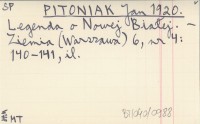 SP PITONIAK Jan 1920.
Legenda o Nowej Białej. –
Ziemia (Warszawa) 6, nr 4:
140-141, il.
MT